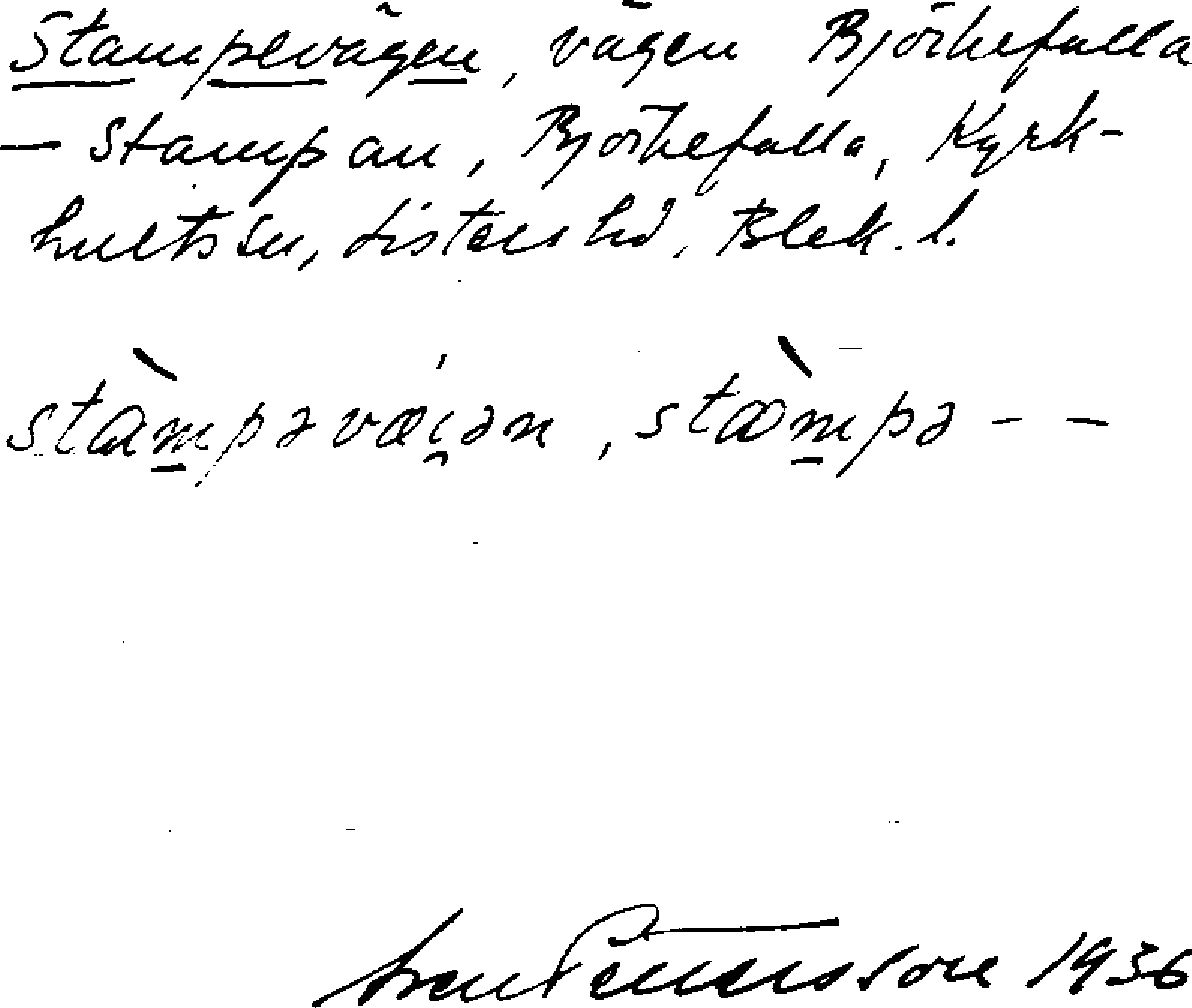 Stampevägen, vägen Björkefalla
— Stampan, Björkefalla, Kyrk-
hults sn, Listers hd, Blek. l.
stàmpəvæ̀i̯ən, stæ̀mpə - -
Sven Pettersson 1936